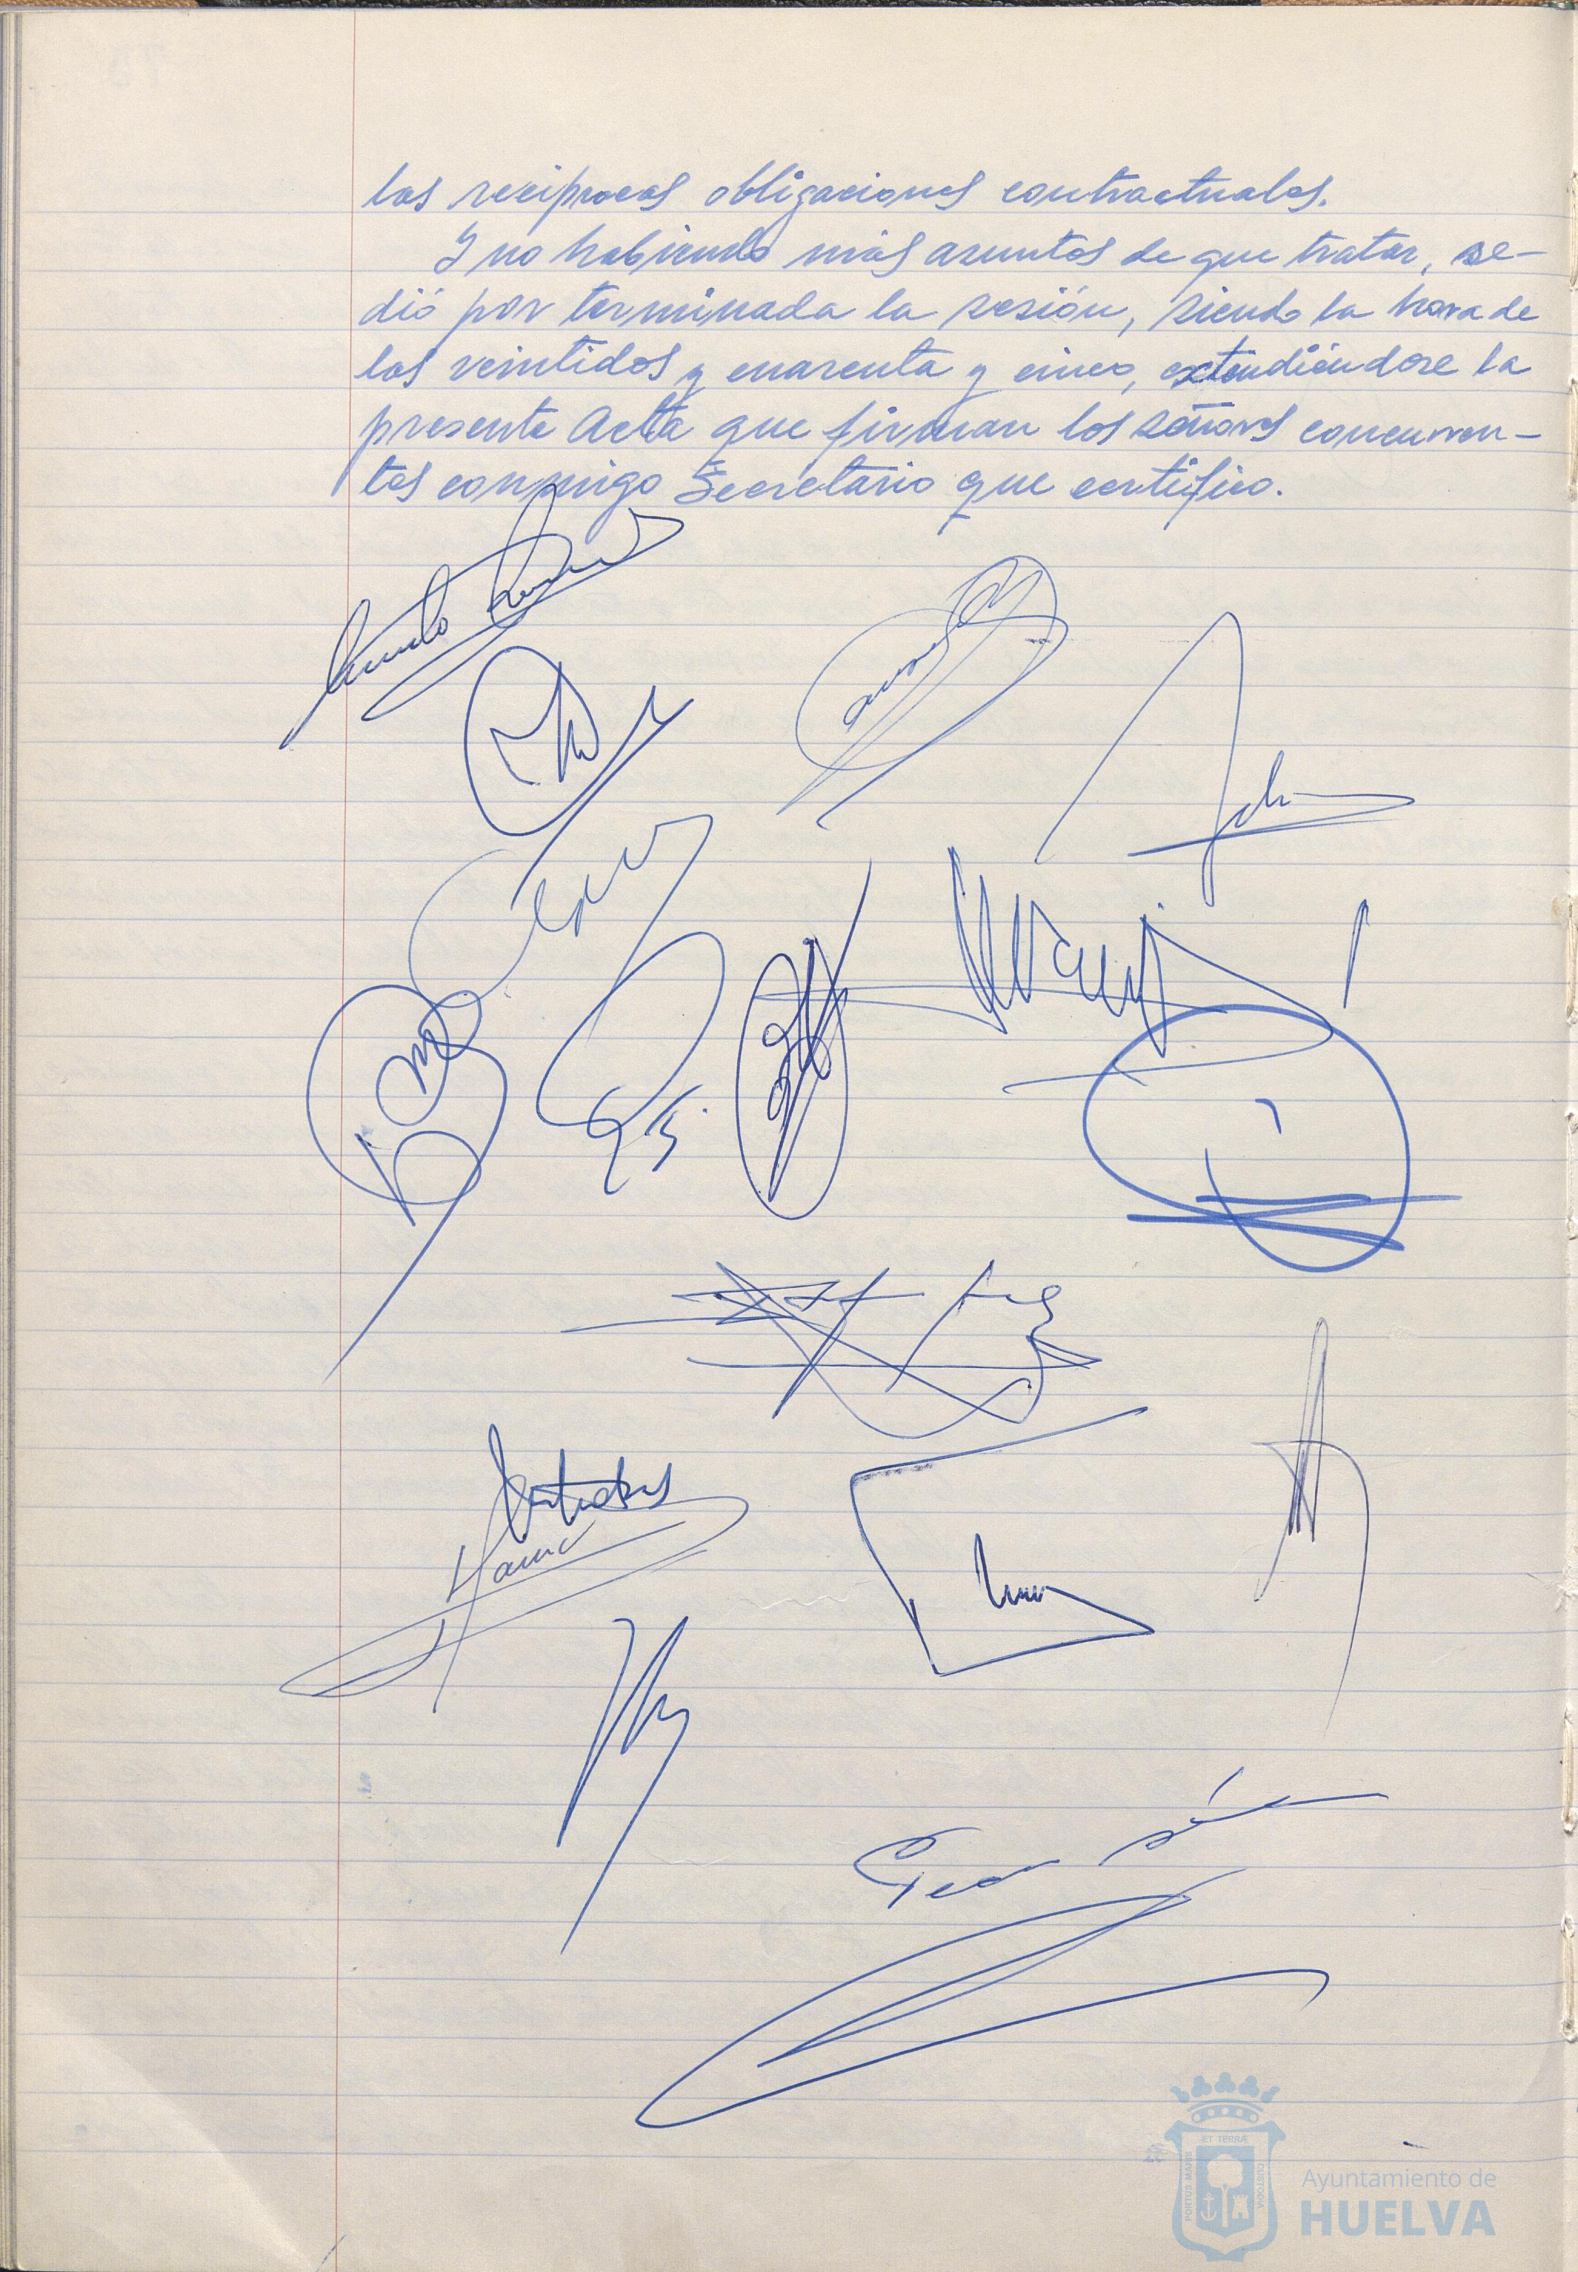 las reciprocas obligaciones contractuales.
Y no habiendo más asuntos de que tratar, se-
dió por terminada la sesión, siendo la hora de
las veintidos y cuarenta y cinco, extendiéndose la
presente Acta que firman los señores concurren-
tes conmigo Secretario que certifico.
ET TERRÆ
PORTUS MARIS
CUSTODIA
Ayuntamiento de
HUELVA